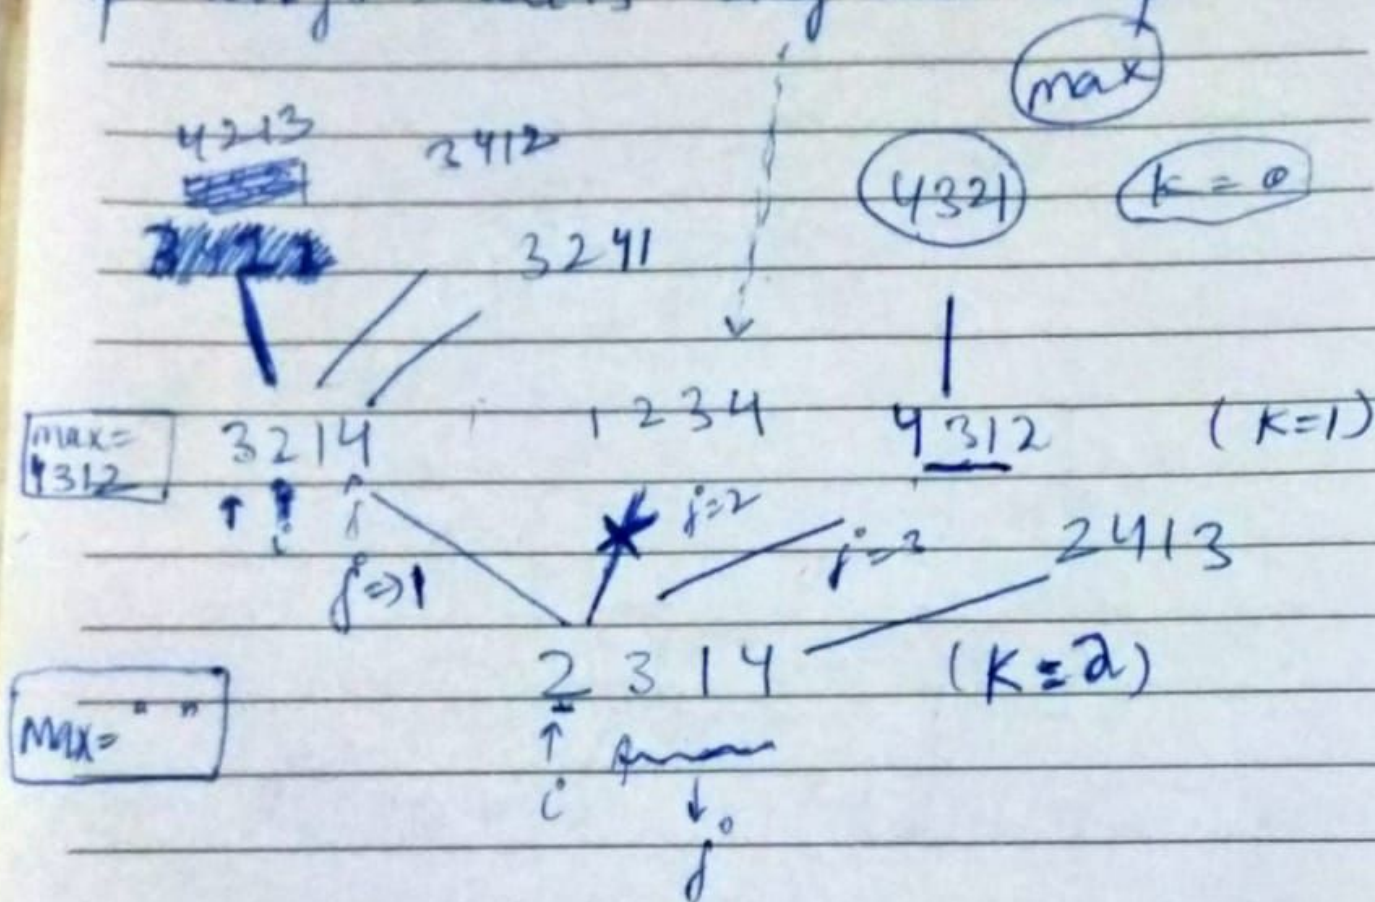 max
4213 3412 4321 k = 0
3241
max= 4312 3214 1234 4312 (K=1)
j=2
i j j=3 2413
j=>1
2 3 1 4 (K=2)
Max= " "
i
j